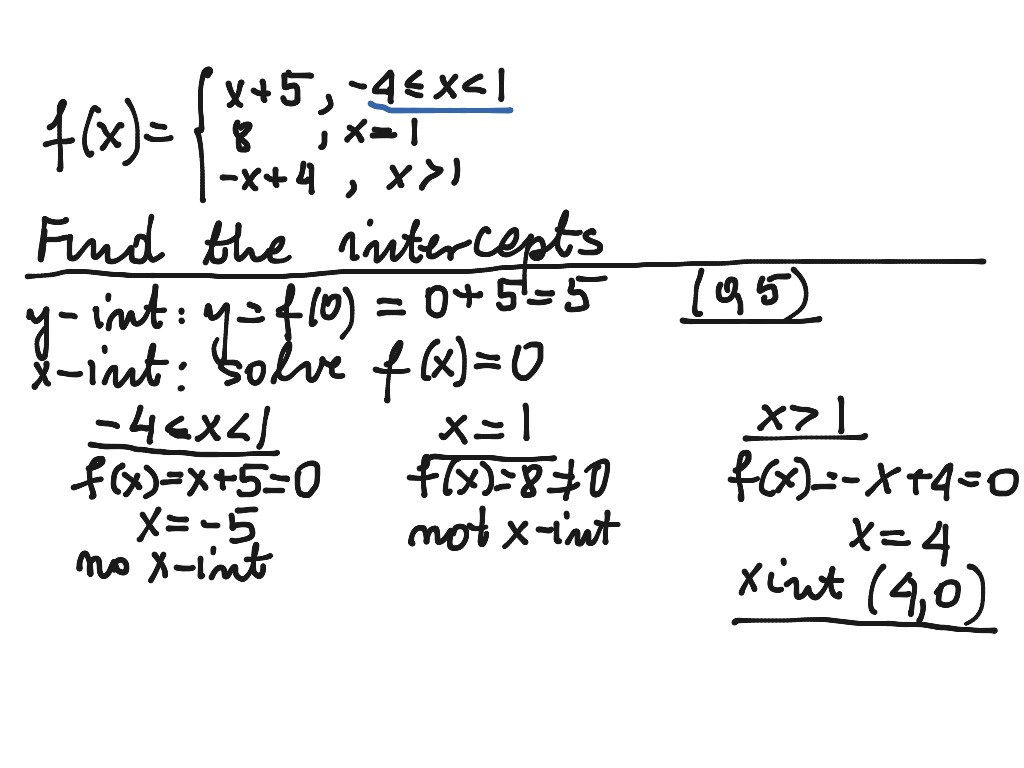 f(x) = { x+5, -4 ≤ x < 1
8, x = 1
-x+4, x > 1
Find the intercepts
y-int: y = f(0) = 0+5 = 5 (0,5)
x-int: solve f(x) = 0
-4 ≤ x < 1 x = 1 x > 1
f(x) = x+5 = 0 f(x) = 8 ≠ 0 f(x) = -x+4 = 0
x = -5 not x-int x = 4
no x-int x int (4,0)